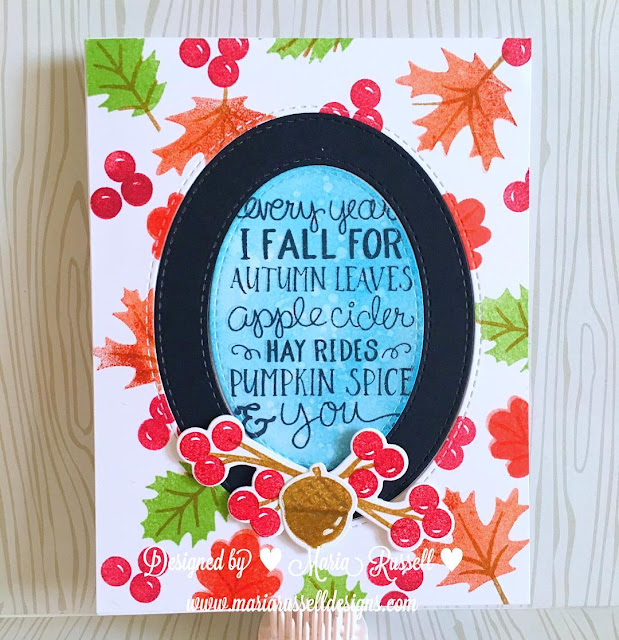 every year
I FALL FOR
AUTUMN LEAVES
apple cider
HAY RIDES
PUMPKIN SPICE
& you
Designed by ♥ Maria Russell ♥
www.mariarusselldesigns.com